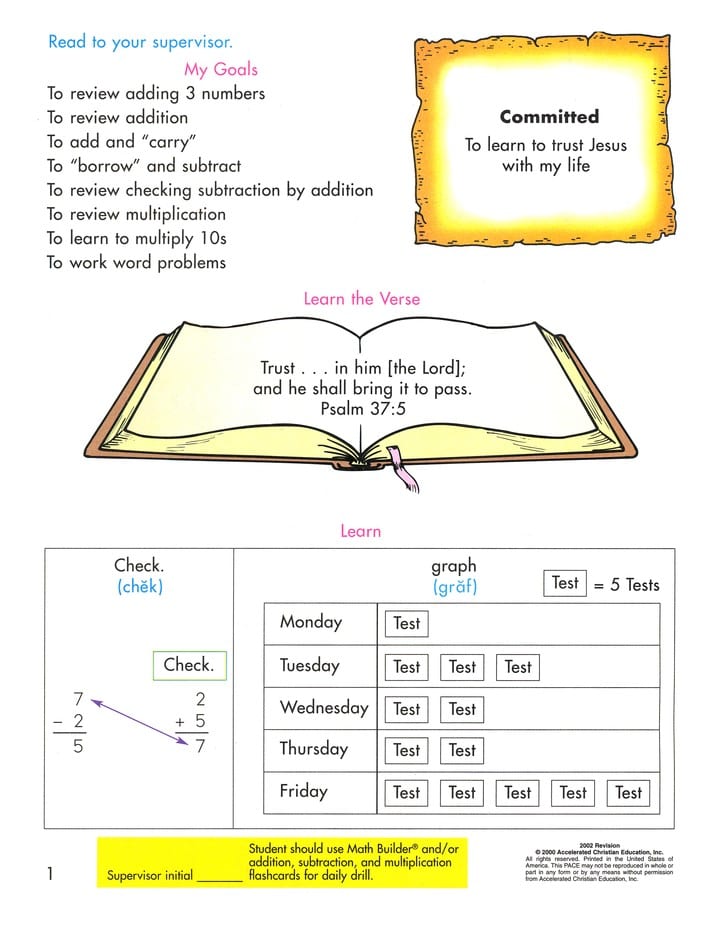 Read to your supervisor.
My Goals
To review adding 3 numbers
To review addition
To add and “carry”
To “borrow” and subtract
To review checking subtraction by addition
To review multiplication
To learn to multiply 10s
To work word problems
Committed
To learn to trust Jesus
with my life
Learn the Verse
Trust . . . in him [the Lord];
and he shall bring it to pass.
Psalm 37:5
Learn
Check.
(chĕk)
Check.
7
− 2
5
2
+ 5
7
graph
(grăf)
Test = 5 Tests
Monday Test
Tuesday Test Test Test
Wednesday Test Test
Thursday Test Test
Friday Test Test Test Test Test
1
Supervisor initial _______
Student should use Math Builder® and/or
addition, subtraction, and multiplication
flashcards for daily drill.
2002 Revision
© 2000 Accelerated Christian Education, Inc.
All rights reserved. Printed in the United States of
America. This PACE may not be reproduced in whole or
part in any form or by any means without permission
from Accelerated Christian Education, Inc.